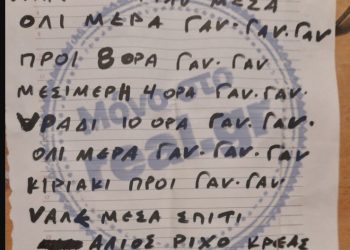 ΜΕΣΑ
ΟΛΙ ΜΕΡΑ ΓΑΝ. ΓΑΝ. ΓΑΝ
ΠΡΟΙ 8 ΟΡΑ ΓΑΝ. ΓΑΝ.
ΜΕΣΙΜΕΡΗ 4 ΟΡΑ ΓΑΝ. ΓΑΝ.
ΒΡΑΔΙ 10 ΟΡΑ ΓΑΝ. ΓΑΝ.
ΟΛΙ ΜΕΡΑ ΓΑΝ. ΓΑΝ. ΓΑΝ.
ΚΙΡΙΑΚΙ ΠΡΟΙ ΓΑΝ. ΓΑΝ.
VΑΛΕ ΜΕΣΑ ΣΠΙΤΙ
ΑΛΙΟΣ ΡΙΧΟ ΚΡΕΑΣ
Μόνο στο
real.gr